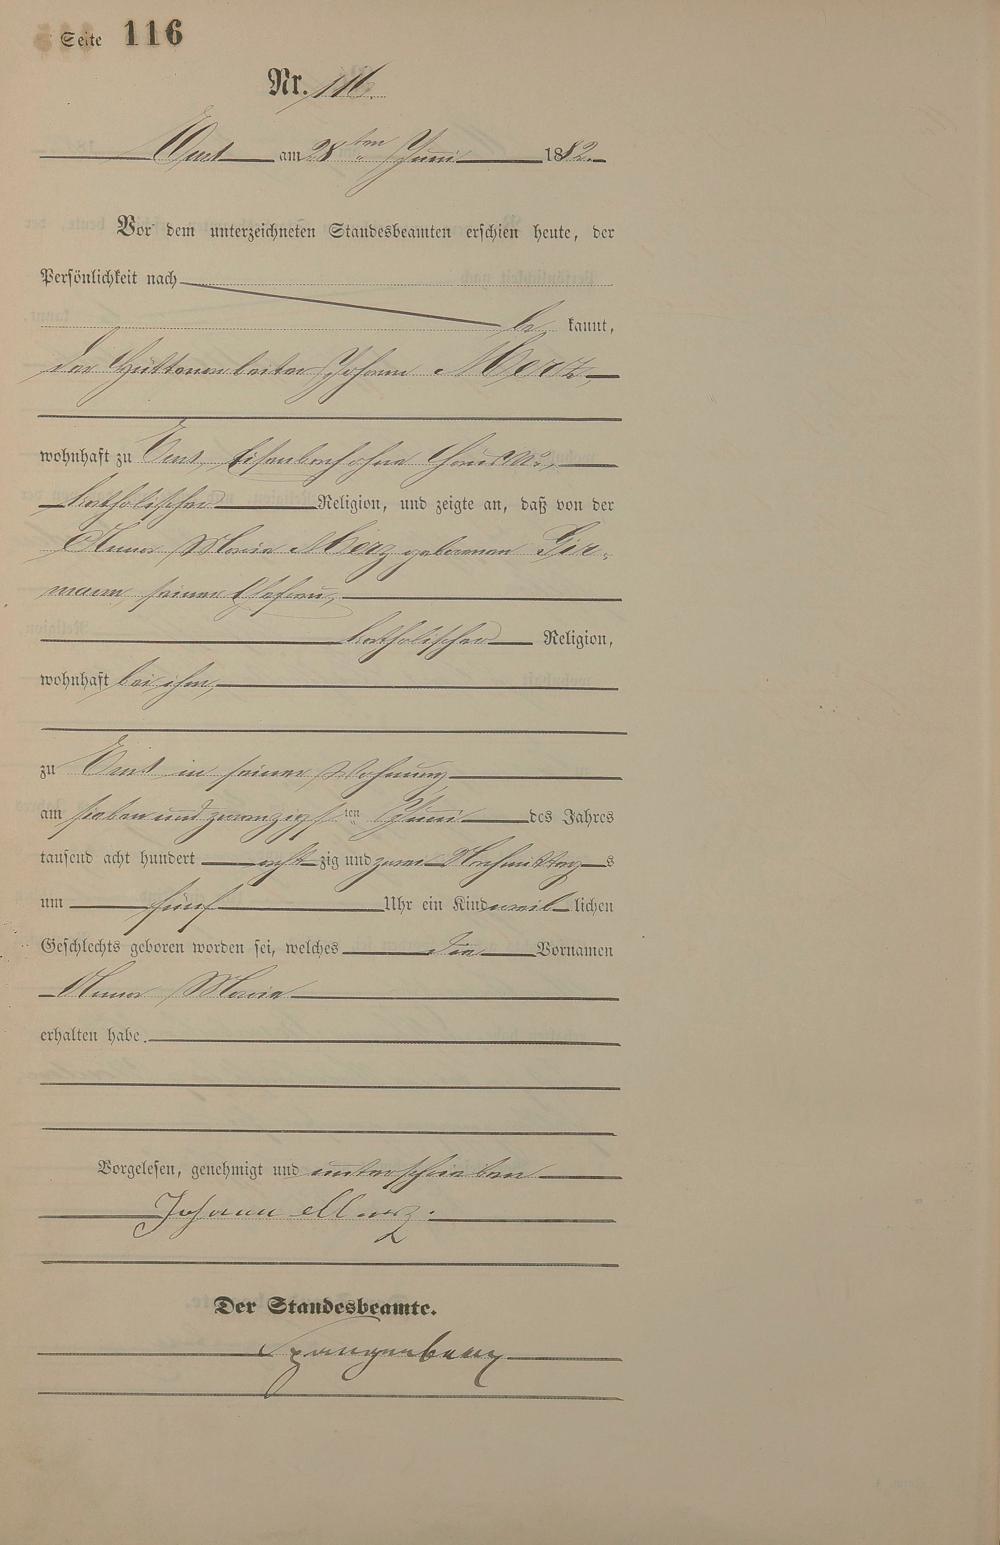 Seite 116
Nr. 116.
Ems am 28ten Juni 1882.
Vor dem unterzeichneten Standesbeamten erschien heute, der
Persönlichkeit nach
be kannt,
der Hüttenarbeiter Johann Merz,
wohnhaft zu Ems,
katholischer Religion, und zeigte an, daß von der
Anna Maria Merz geborenen Gir-
mann, seiner Ehefrau,
katholischer Religion,
wohnhaft bei ihm,
zu Ems in seiner Wohnung
am sieben und zwanzigsten Juni des Jahres
tausend acht hundert acht zig und zwei Nachmittags
um fünf Uhr ein Kind weib lichen
Geschlechts geboren worden sei, welches die Vornamen
Anna Maria
erhalten habe.
Vorgelesen, genehmigt und unterschrieben
Johann Merz.
Der Standesbeamte.
Spangenberg